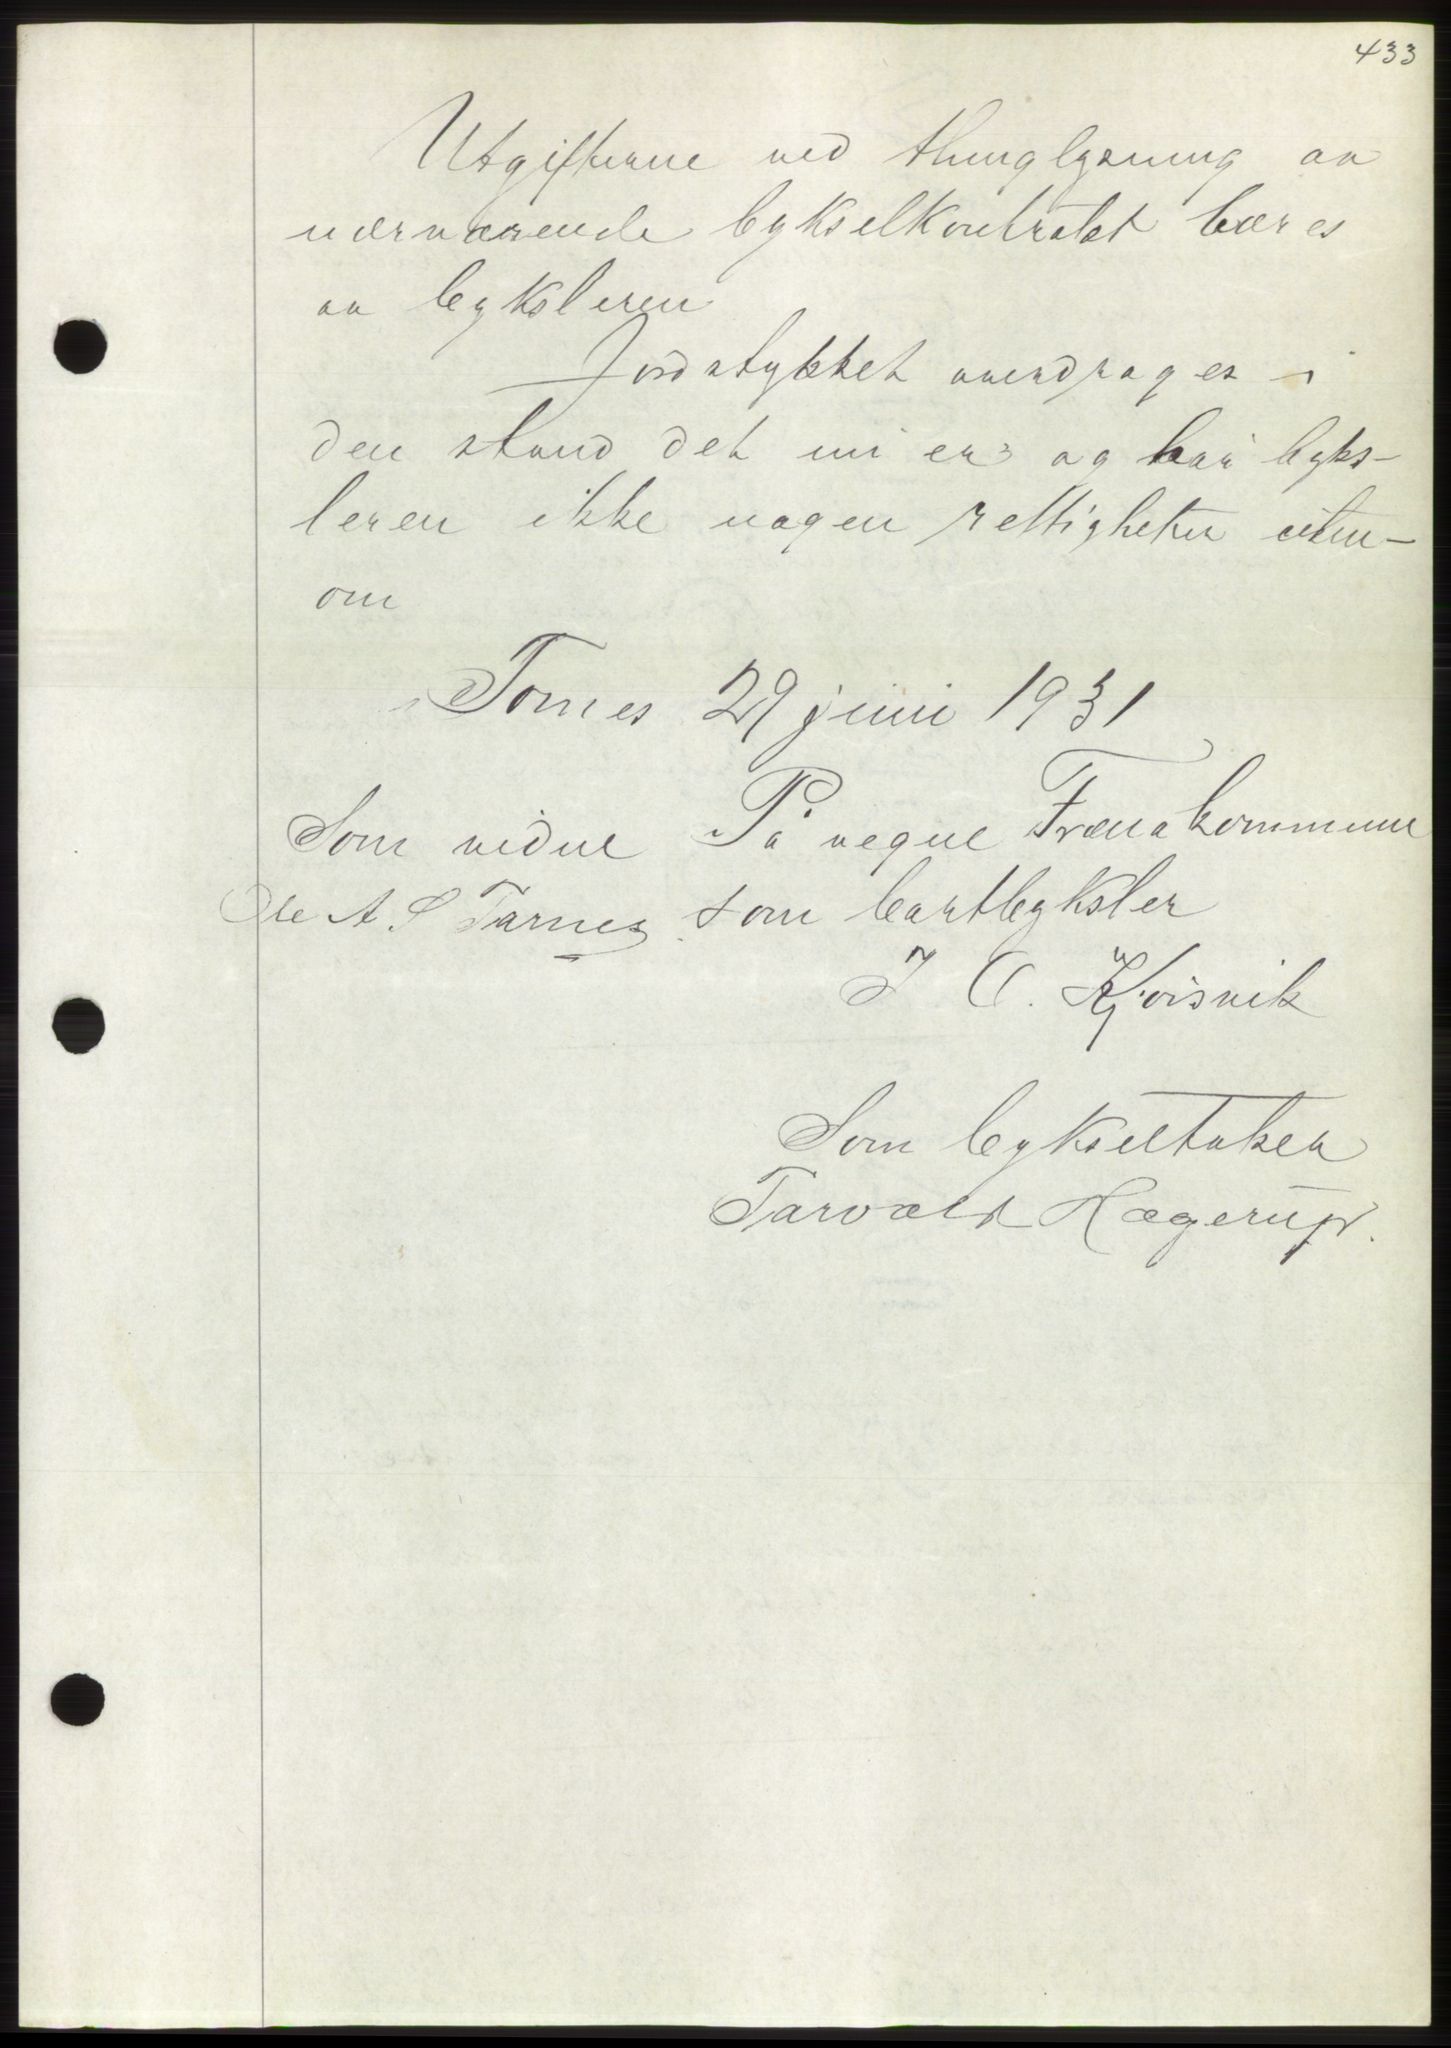 433
Utgifterne ved thinglysning av
nærværende bykselkontrakt bæres
av byksleren
Jordstykket overdrages i
den stand det nu er og har byks-
leren ikke nogen rettigheter uten-
om
Tornes 29 juni 1931
Som vidne På vegne Frænakommune
Ole A. S Tarnes som bortbyksler
J O. Kjørsvik
Som bykseltaker
Torvald Hagerup.